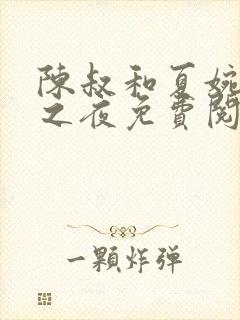 陳叔和夏婉
之夜免費閱
一顆炸弹